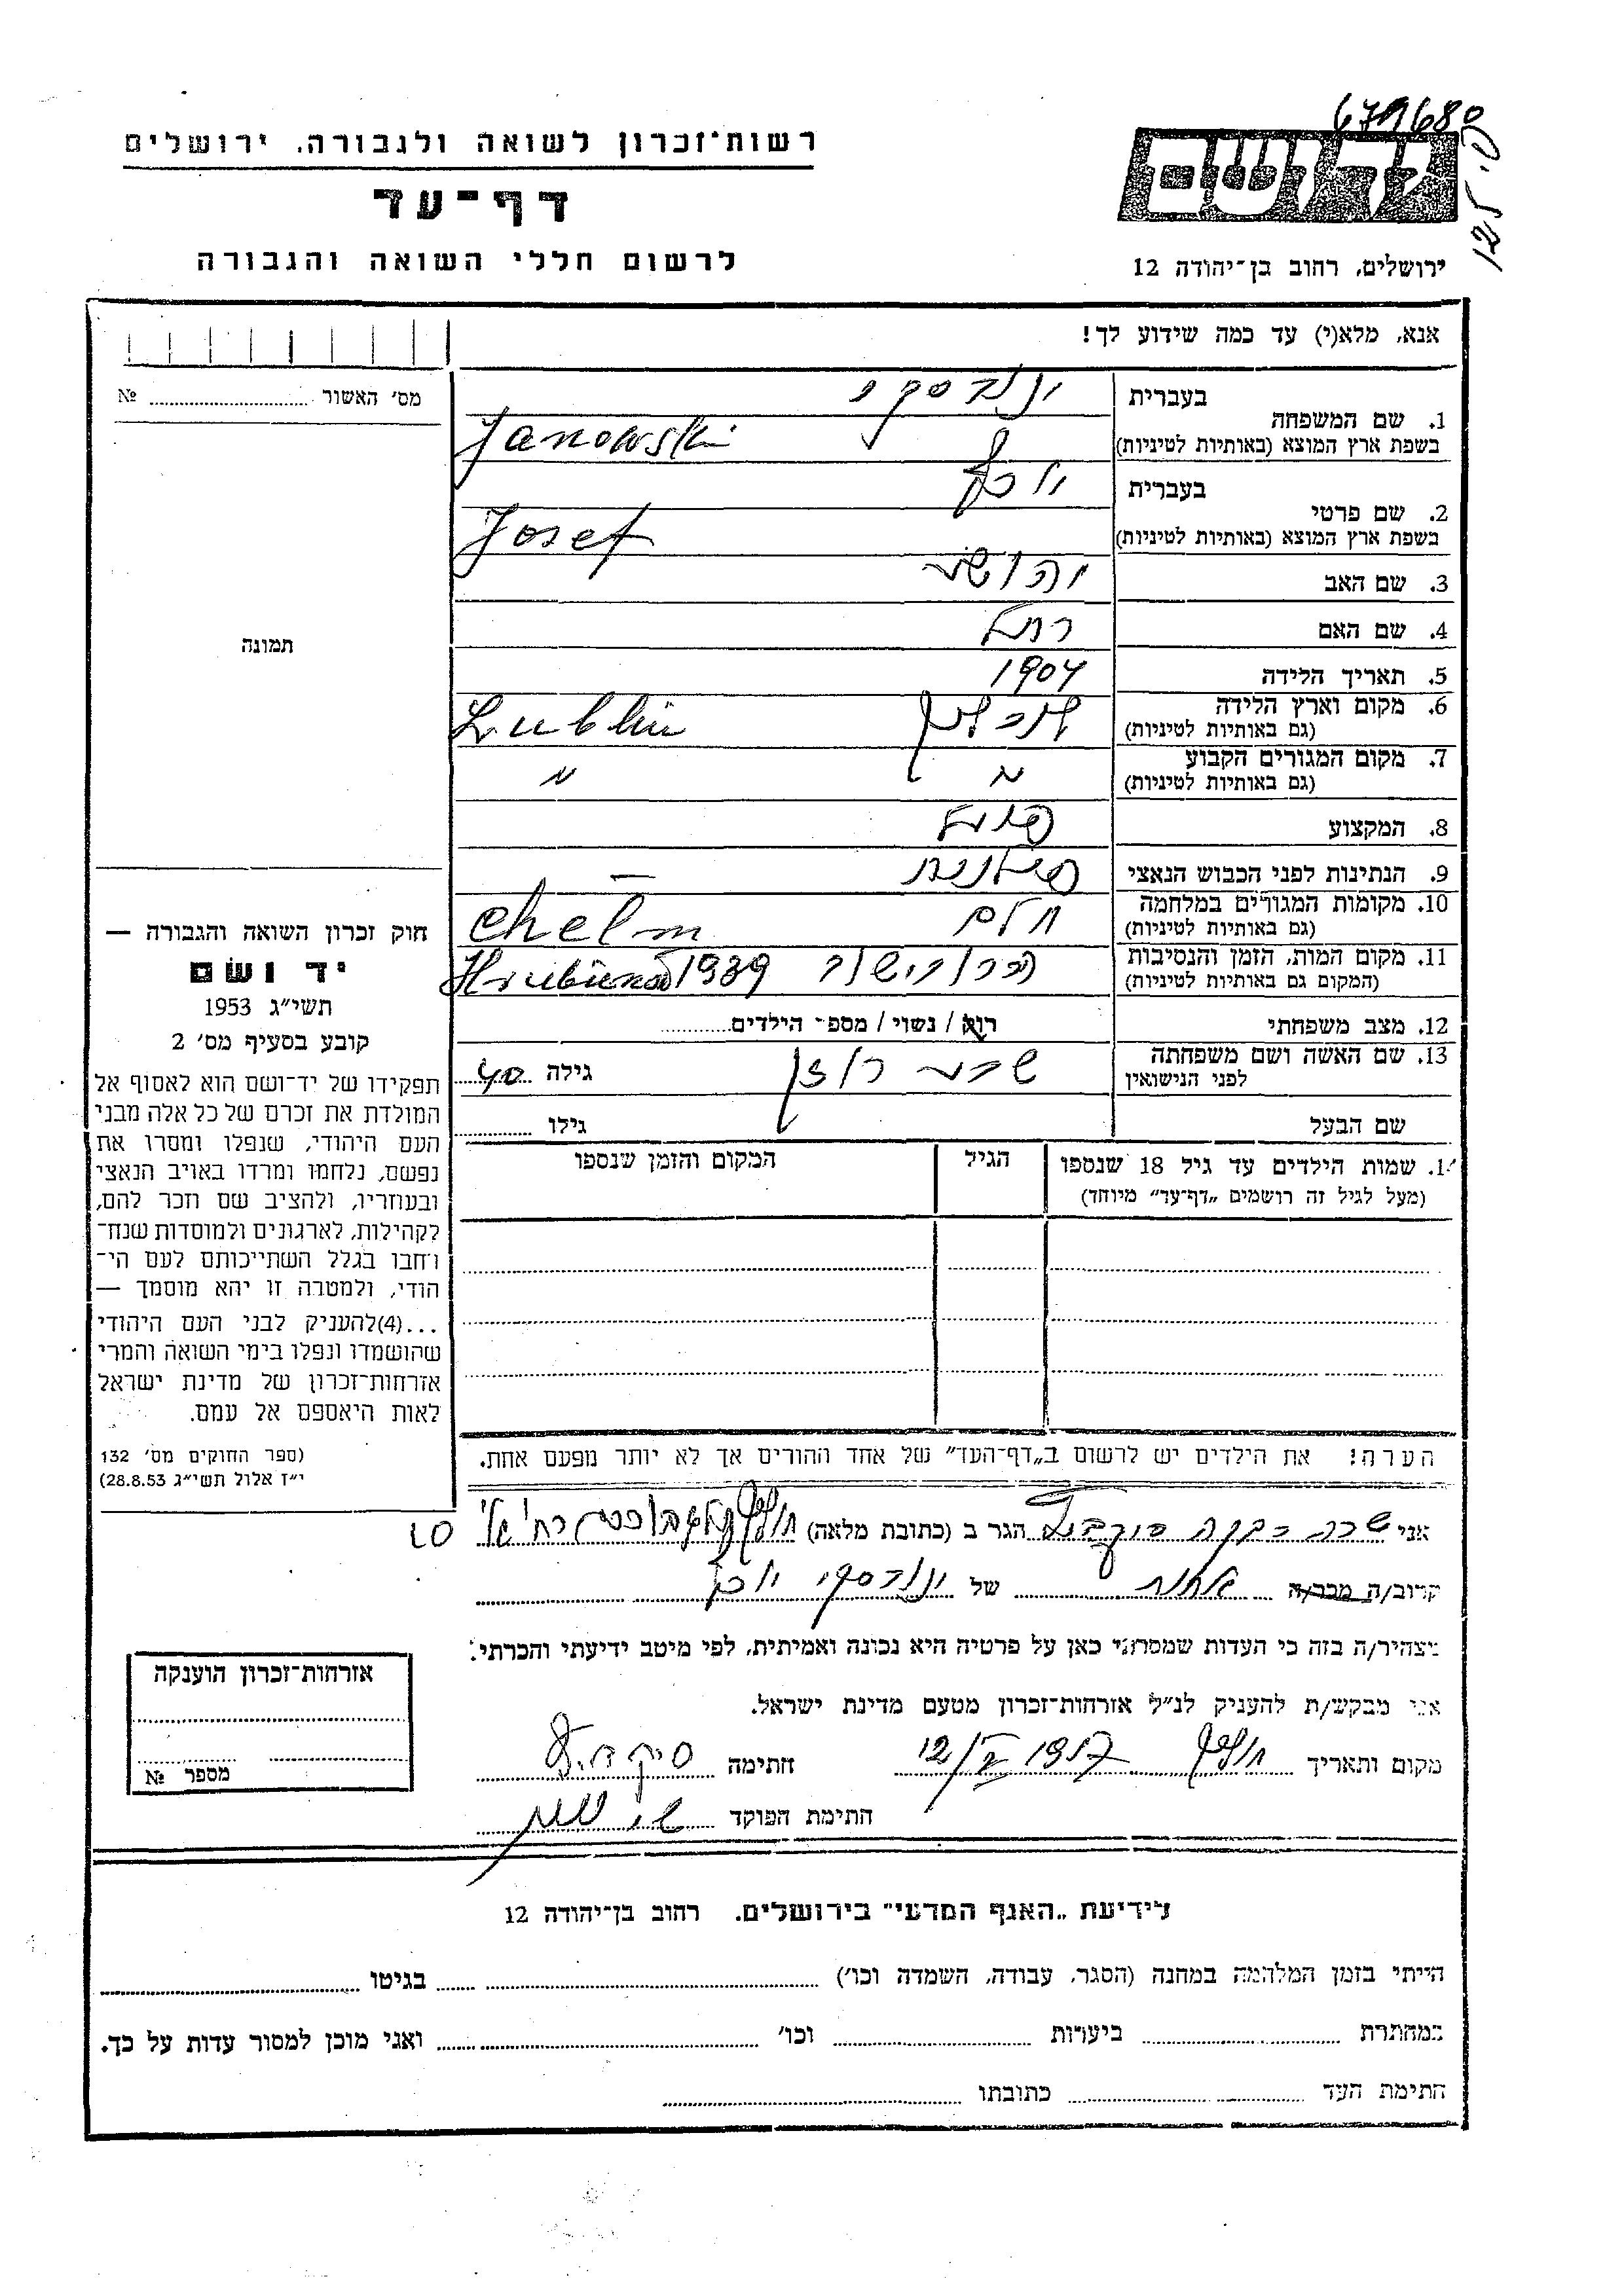 679680
רשות־זכרון לשואה ולגבורה. ירושלים
דף־עד
לרשום חללי השואה והגבורה
יד ושם
ירושלים, רחוב בן־יהודה 12
אנא, מלא(י) עד כמה שידוע לך!
מס׳ האשור № 
תמונה
1. שם המשפחה
בעברית ינובסקי
בשפת ארץ המוצא (באותיות לטיניות) Janowski
2. שם פרטי
בעברית יוסף
בשפת ארץ המוצא (באותיות לטיניות) Josef
3. שם האב יהושע
4. שם האם
5. תאריך הלידה 1904
6. מקום וארץ הלידה לובלין Lublin
(גם באותיות לטיניות)
7. מקום המגורים הקבוע " "
(גם באותיות לטיניות)
8. המקצוע פועל
9. הנתינות לפני הכבוש הנאצי פולנית —
10. מקומות המגורים במלחמה חלם Chelm
(גם באותיות לטיניות)
11. מקום המות, הזמן והנסיבות 1939
(המקום גם באותיות לטיניות)
12. מצב משפחתי רוק / נשוי / מספר הילדים
13. שם האשה ושם משפחתה שרה רוזן גילה 40
לפני הנישואין
שם הבעל גילו
14. שמות הילדים עד גיל 18 שנספו הגיל המקום והזמן שנספו
(מעל לגיל זה רושמים „דף־עד״ מיוחד)
הערה: את הילדים יש לרשום ב„דף־העד״ של אחד ההורים אך לא יותר מפעם אחת.
חוק זכרון השואה והגבורה —
יד ושם
תשי״ג 1953
קובע בסעיף מס׳ 2
תפקידו של יד־ושם הוא לאסוף אל
המולדת את זכרם של כל אלה מבני
העם היהודי, שנפלו ומסרו את
נפשם, נלחמו ומרדו באויב הנאצי
ובעוזריו, ולהציב שם וזכר להם,
לקהילות, לארגונים ולמוסדות שנח־
רחבו בגלל השתייכותם לעם הי־
הודי, ולמטרה זו יהא מוסמך —
...(4)להעניק לבני העם היהודי
שהושמדו ונפלו בימי השואה והמרי
אזרחות־זכרון של מדינת ישראל
לאות היאספם אל עמם.
(ספר החוקים מס׳ 132
י״ז אלול תשי״ג 28.8.53)
אני שרה רבקה הגר ב (כתובת מלאה) חולון
קרוב/ה מכר/ה אחות של ינובסקי יוסף
מצהיר/ה בזה כי העדות שמסרתי כאן על פרטיה היא נכונה ואמיתית, לפי מיטב ידיעתי והכרתי.
אני מבקש/ת להעניק לנ״ל אזרחות־זכרון מטעם מדינת ישראל.
מקום ותאריך חולון 12/ 1957 חתימה
חתימת הפוקד
אזרחות־זכרון הוענקה
מספר №
לידיעת „האגף המדעי״ בירושלים. רחוב בן־יהודה 12
הייתי בזמן המלחמה במחנה (הסגר, עבודה, השמדה וכו׳) בגיטו
במחתרת ביערות וכו׳ ואני מוכן למסור עדות על כך.
חתימת העד כתובתו